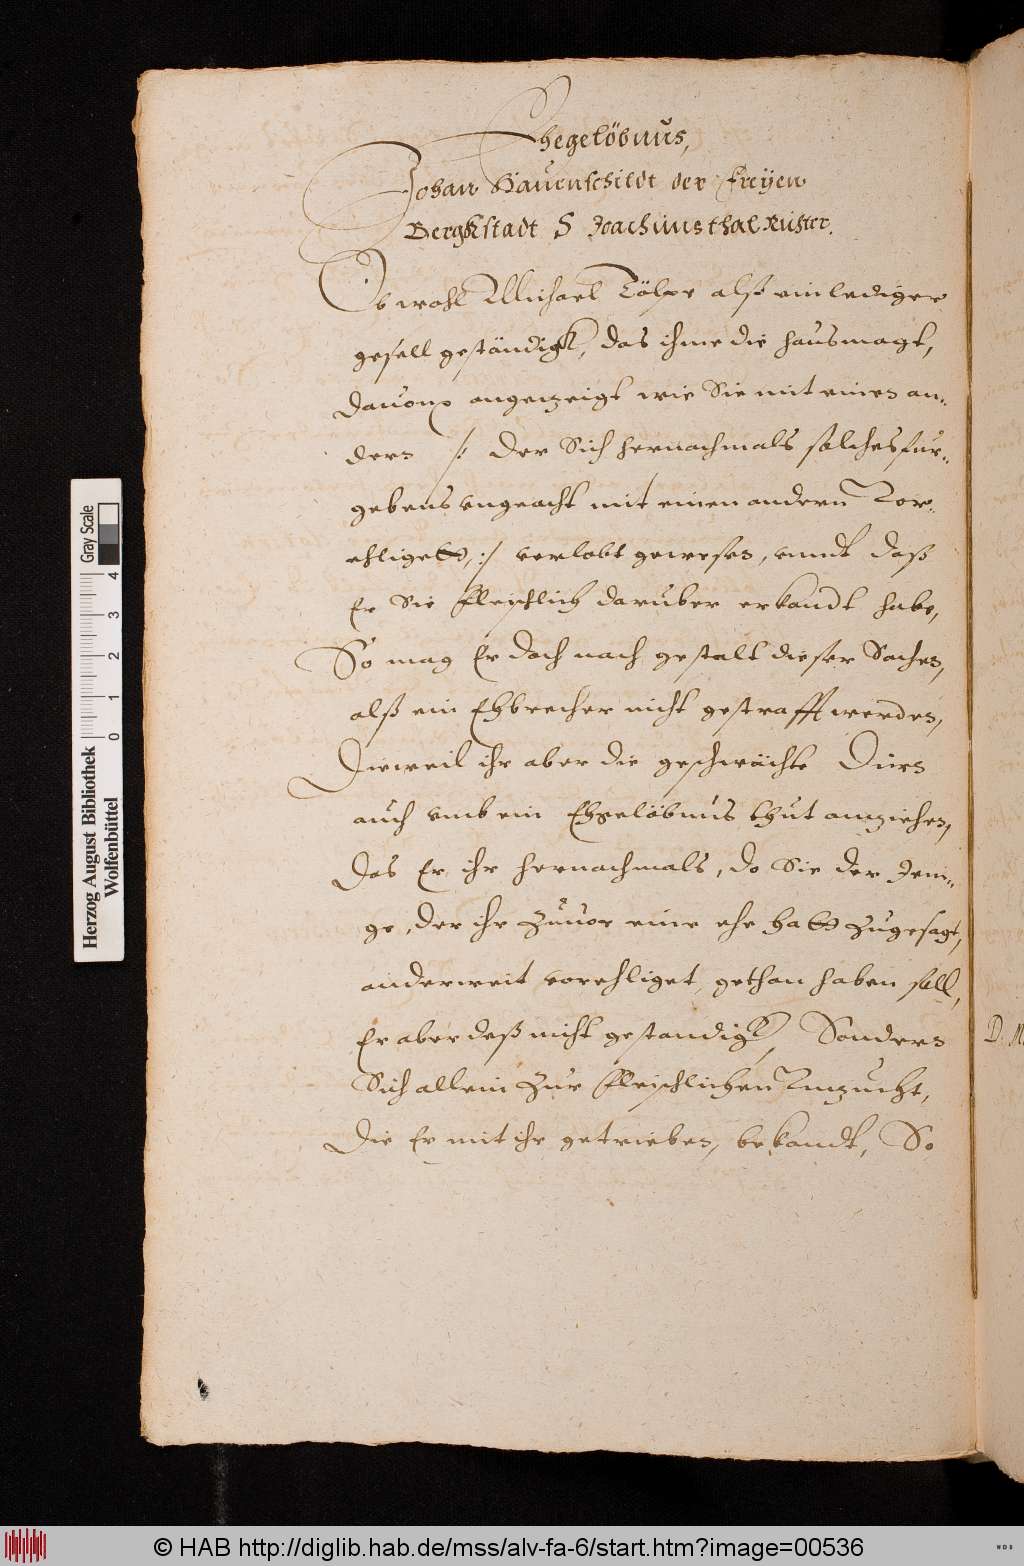 Ehegelöbnus,
Johan Hauenschildt der Freyen
Bergkstadt S Joachimsthal Richter.
Ob wohl Michael Tölpe alß ein lediger
gesell geständigk, das ihme die hausmagt,
dauonn angezeigt wie Sie mit einen an-
dern /: der Sich hernachmals solches fur-
gebens vngeacht mit einen andern
verlobt gewesen, vnndt daß
Er Sie fleischlich daruber erkandt habe,
So mag Er doch nach gestalt dieser Sachen,
alß ein Ehbrecher nicht gestrafft werden,
Dieweil ihr aber die geschwächte Dirn
auch vmb ein Ehgelöbnus thut anziehen,
das Er ihr hernachmals, do Sie der Jeni-
ge, der ihr Zuuor eine ehe hatt Zugesagt,
anderweit vorehliget, gethan haben soll,
Er aber deß nicht gestandigk, Sondern
Sich allein Zur fleischlichen Vnzucht,
die Er mit ihr getrieben, bekandt, So
D.
Herzog August Bibliothek
Wolfenbüttel
Gray Scale
0 1 2 3 4
© HAB http://diglib.hab.de/mss/alv-fa-6/start.htm?image=00536